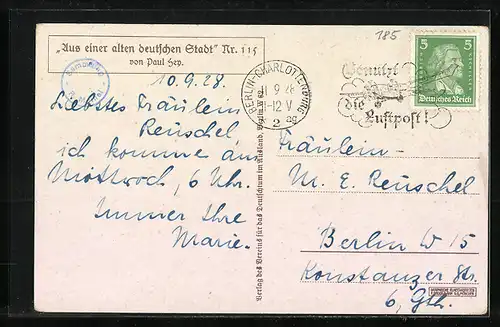 185
„Aus einer alten deutschen Stadt" Nr. 115
von Paul Hey.
10.9.28.
Liebstes Fräulein
Reuschel,
ich komme am
Mittwoch, 6 Uhr.
Immer Ihre
Marie.
BERLIN-CHARLOTTENBURG
9 28
-12 V
2
Benutzt
die
Luftpost!
5 5
Deutsches Reich
Fräulein
M. E. Reuschel
Berlin W 15
Konstanzer Str.
6, Gth.
Verlag des Vereins für das Deutschtum im Ausland, Berlin